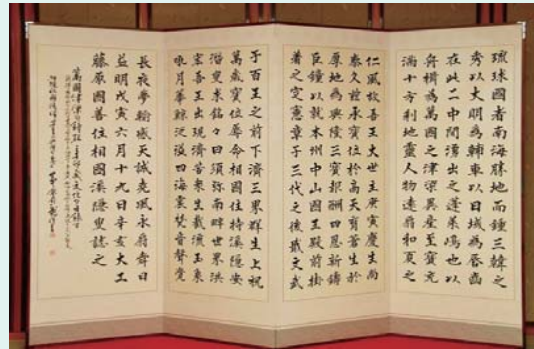 琉球國者南海勝地而鍾三韓之
秀以大明為輔車以日域為唇齒
在此二中間湧出之蓬莱嶋也以
舟楫為萬國之津梁異産至寶充
満十方刹地靈人物遠扇和夏之
仁風故吾王大世主庚寅慶生尚
泰久茲承寶位於高天育蒼生於
厚地為興隆三寶報酬四恩新鋳
巨鐘以就本州中山國王殿前掛
著之定憲章于三代之後戢文武
于百王之前下済三界群生上祝
萬歳寶位辱命相國住持溪隠安
潜叟求銘々曰須弥南畔世界洪
宏吾王出現済苦衆生截流玉象
吼月華鯨泛溢四海震梵音聲覚
長夜夢輸感天誠堯風永扇舜日
益明戊寅六月十九日辛亥大工
藤原國善住相國溪隠叟誌之
萬國津梁之鐘